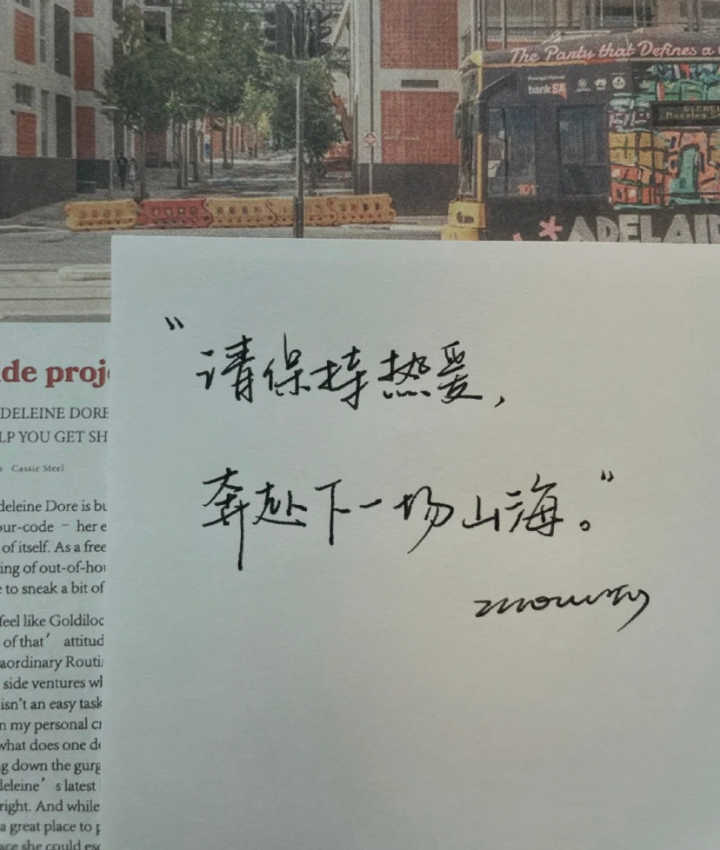 The Party that Defines a
bankSA
101
ADELAID
de proj
DELEINE DORE
LP YOU GET SH
Cassie Steel
deleine Dore is bu
our-code – her e
of itself. As a free
ing of out-of-hou
e to sneak a bit of
feel like Goldiloc
of that’ attitud
aordinary Routi
side ventures wh
isn’t an easy task
n my personal cr
what does one do
g down the gurg
deleine’s latest
right. And while
a great place to p
ace she could esc
“请保持热爱，
奔赴下一场山海。”